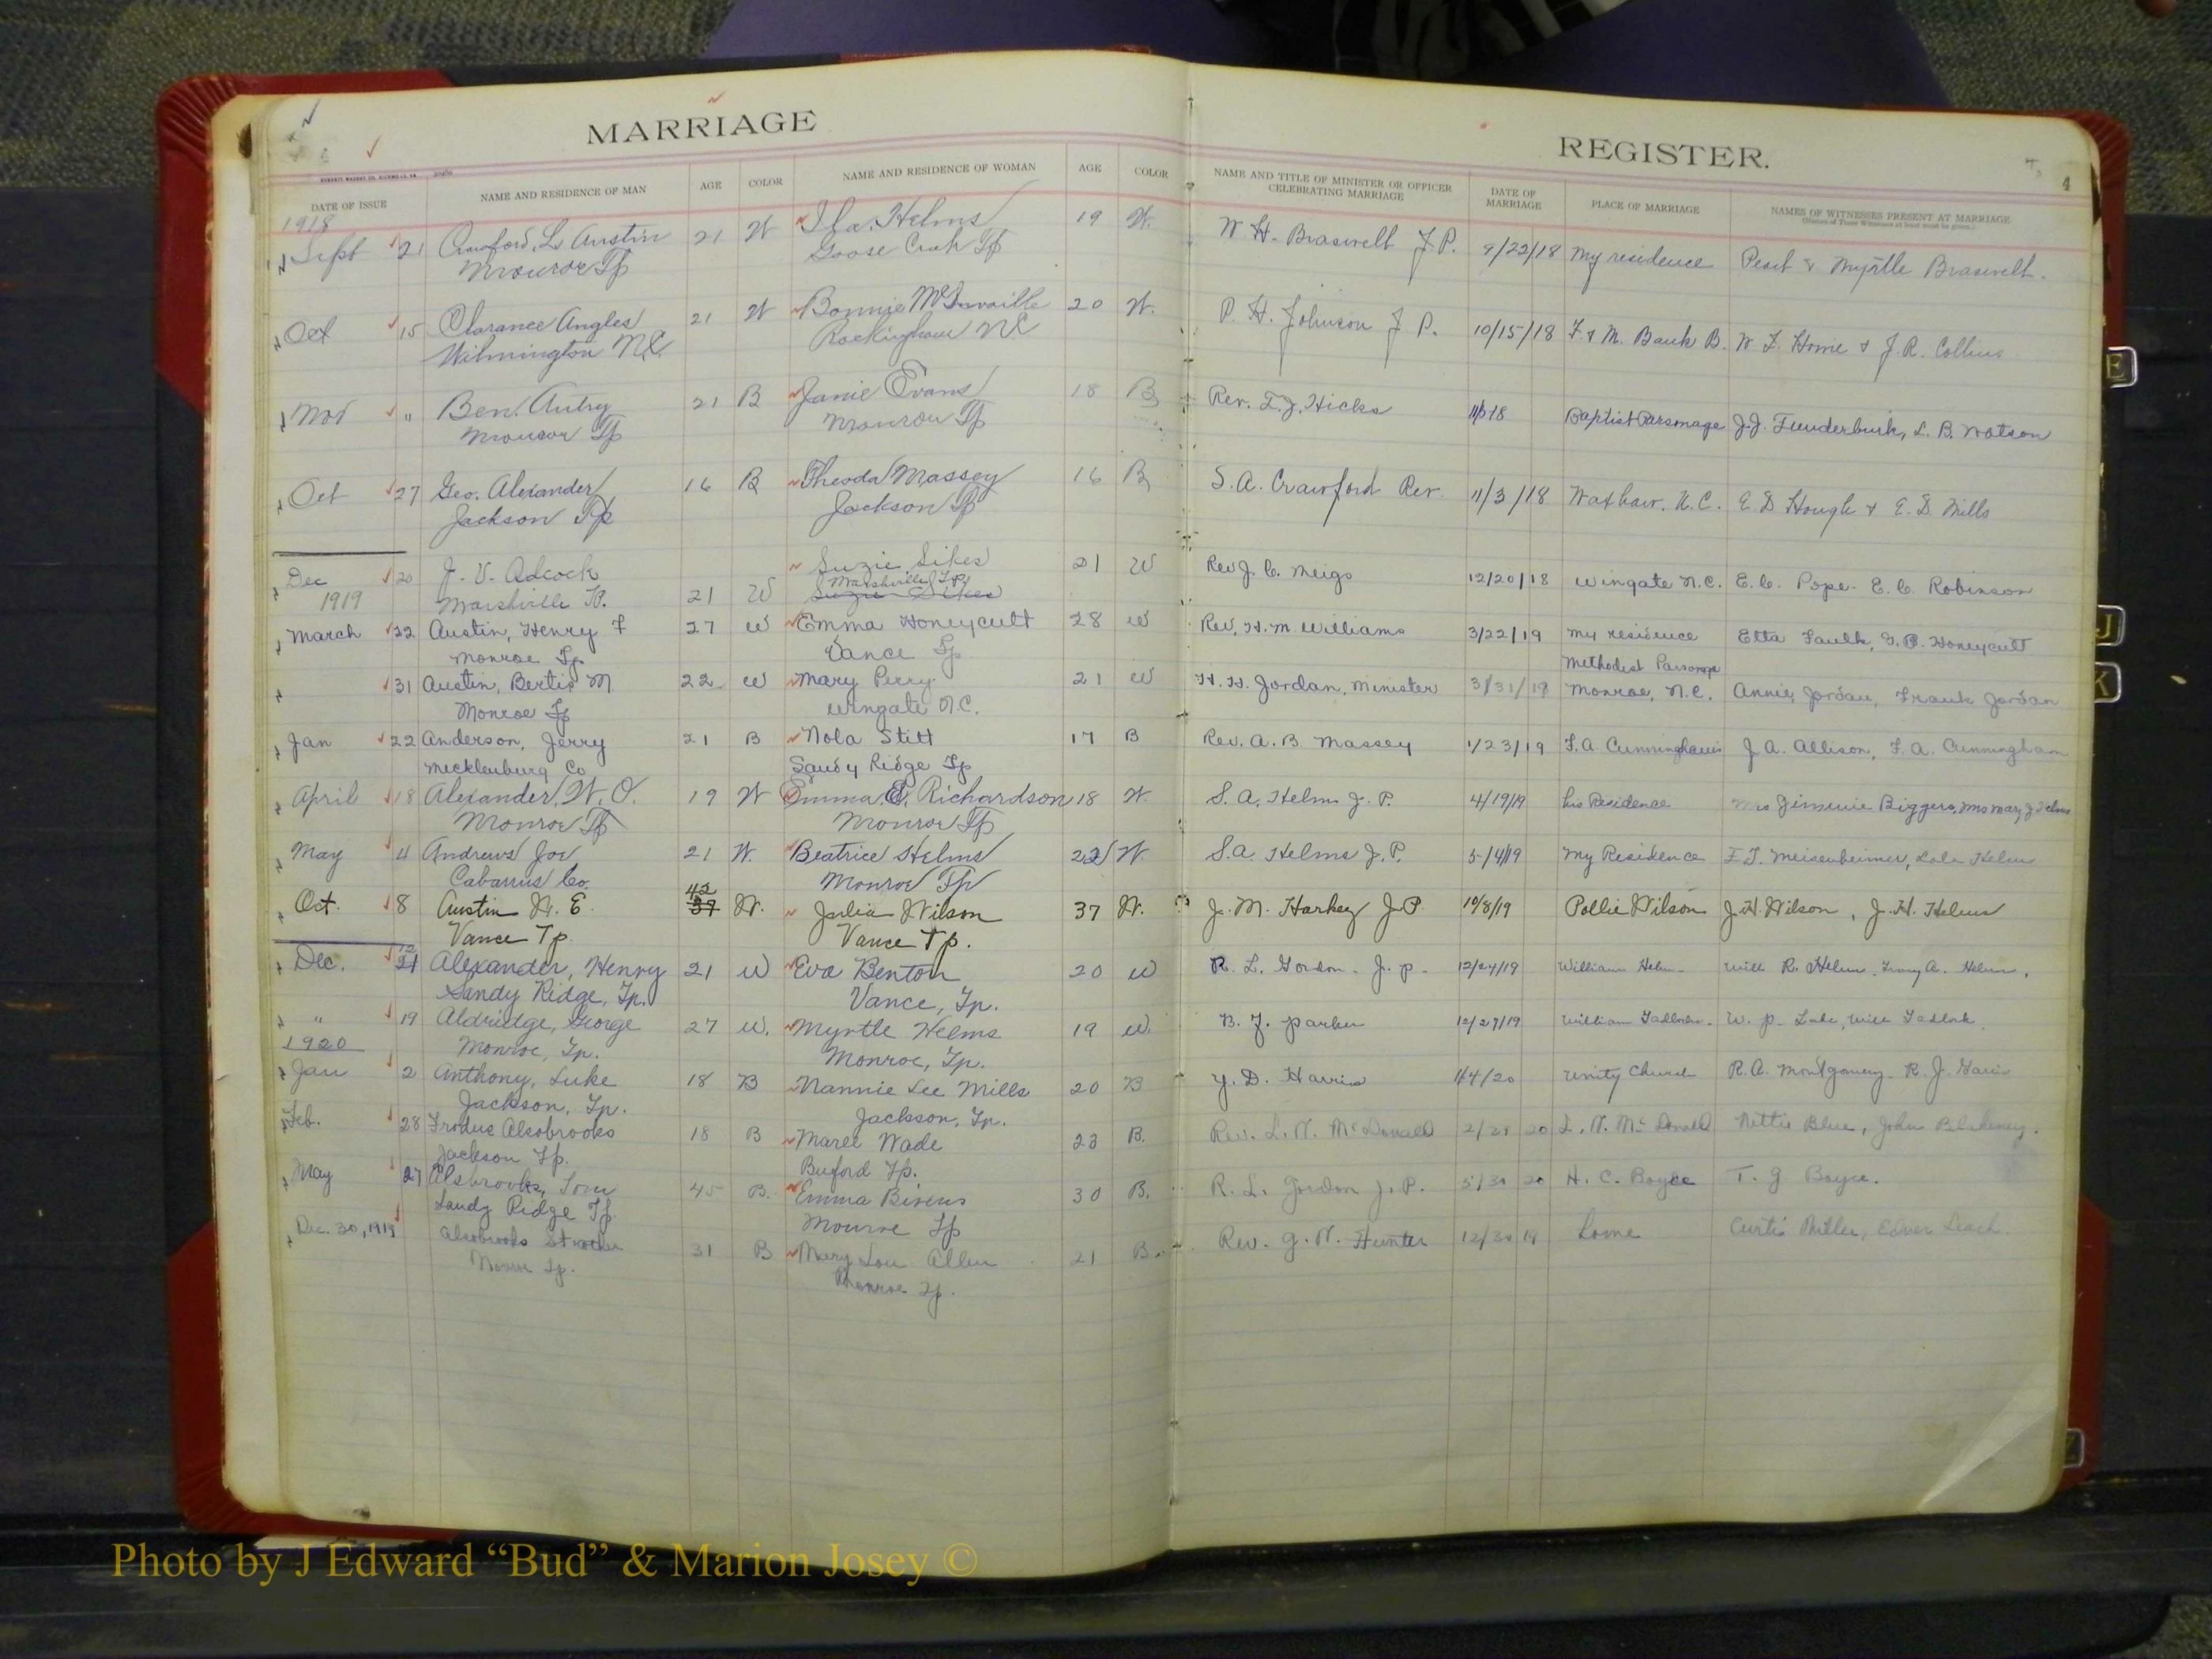 MARRIAGE
REGISTER.
4
DATE OF ISSUE NAME AND RESIDENCE OF MAN AGE COLOR NAME AND RESIDENCE OF WOMAN AGE COLOR NAME AND TITLE OF MINISTER OR OFFICER CELEBRATING MARRIAGE DATE OF MARRIAGE PLACE OF MARRIAGE NAMES OF WITNESSES PRESENT AT MARRIAGE
1918
Sept 21 Crawford L. Austin 21 W Ila Helms 19 W. W. H. Braswell J.P. 9/22/18 My residence & Myrtle Braswell.
Monroe Tp Goose Creek Tp
Oct 15 Clarance Angles 21 W Bonnie 20 W. P. H. Johnson J P. 10/15/18 F & M. Bank B. & J.R. Collins
Wilmington N.C. Rockingham NC
Nov " Ben. Autry 21 B Janie Evans 18 B Rev. Hicks Baptist Parsonage J.J. Funderburk, L. B. Watson
Monroe Tp Monroe Tp
Oct 27 Geo. Alexander 16 B Theoda Massey 16 B S. A. Crawford Rev. 11/3/18 Waxhaw, N.C. E. D Hough & E. D. Mills
Jackson Tp Jackson Tp
Dec 20 J. V. Adcock Suzie Sikes 21 W Rev J. C. Meigs 12/20/18 Wingate N.C. E. C. Pope - E. C. Robinson
1919 Marshville Tp. 21 W Marshville Tp
Suzie Sikes
March 22 Austin, Henry F 27 W Emma Honeycutt 28 W Rev. H. M. Williams 3/22/19 my residence Etta Faulk, Honeycutt
Monroe Tp Vance Tp Methodist Parsonage
31 Austin, Bertis M 22 W Mary Perry 21 W H. H. Jordan, Minister 3/31/19 Monroe, N.C. Annie Jordan, Frank Jordan
Monroe Tp Wingate N.C.
Jan 22 Anderson, Jerry 21 B Nola Stitt 17 B Rev. A. B Massey 1/23/19 F. A. Cunninghams J. A. Allison, F. A. Cunningham
Mecklenburg Co Sandy Ridge Tp
April 18 Alexander, W. O. 19 W Emma E. Richardson 18 W. S. A. Helms J. P. 4/19/19 his Residence Mrs Jimmie Biggers, Mrs Mary J Helms
Monroe Tp Monroe Tp
May 4 Andrews Joe 21 W. Beatrice Helms 22 W S. A. Helms J. P. 5/4/19 My Residence Meisenheimer, Lola Helms
Cabarrus Co. Monroe Tp
42
Oct. 8 Austin 37 W. Julia Wilson 37 W. J. M. Harkey J.P. 10/8/19 Pollie Wilson J. H. Wilson, J. H. Helms
Vance Tp. Vance Tp.
Dec. Alexander, Henry 21 W Eva Benton 20 W R. L. Gordon - J. P. 12/24/19 William Helm Will R. Helms, A. Helms.
Sandy Ridge, Tp. Vance, Tp.
" 19 Aldridge, George 27 W. Myrtle Helms 19 W. Parker 12/27/19 William W. P.
1920 Monroe, Tp. Monroe, Tp.
Jan 2 Anthony, Luke 18 B Nannie Lee Mills 20 B Y. D. Harris 1/4/20 Unity Church R. A. Montgomery R. J. Harris
Jackson, Tp. Jackson, Tp.
Feb. 28 Alsobrooks 18 B Wade 23 B. Rev. L. N. McDonald 20 L. N. McDonald Nettie Blue, John Blakeney.
Jackson Tp. Buford Tp.
May 27 Alsbrooks, Tom 45 B. Emma Bivens 30 B. R. L. Gordon J. P. 5/30 20 H. C. Boyce T. G Boyce.
Sandy Ridge Tp. Monroe Tp
Dec. 30, 1919 Alsobrooks Strother 31 B Mary Lou Allen 21 B. Rev. G. W. Hunter 12/30 19 Curtis Miller, Leach.
Monroe Tp. Monroe Tp.
E
J
K
Photo by J Edward “Bud” & Marion Josey ©